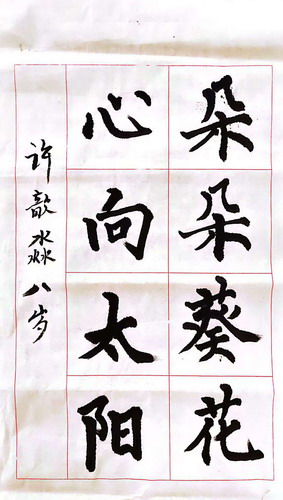 朵朵葵花
心向太阳
许歆淼八岁